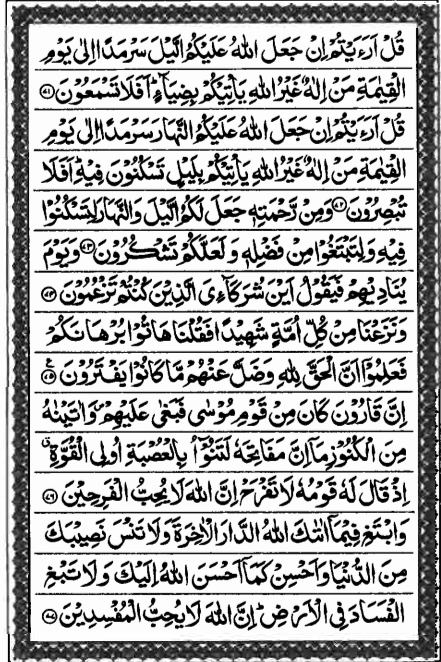 قُلْ اَرَءَيْتُمْ اِنْ جَعَلَ اللّٰهُ عَلَيْكُمُ الَّيْلَ سَرْمَدًا اِلٰى يَوْمِ
الْقِيٰمَةِ مَنْ اِلٰهٌ غَيْرُ اللّٰهِ يَاْتِيْكُمْ بِضِيَآءٍ ؕ اَفَلَا تَسْمَعُوْنَ ﴿۷۱﴾
قُلْ اَرَءَيْتُمْ اِنْ جَعَلَ اللّٰهُ عَلَيْكُمُ النَّهَارَ سَرْمَدًا اِلٰى يَوْمِ
الْقِيٰمَةِ مَنْ اِلٰهٌ غَيْرُ اللّٰهِ يَاْتِيْكُمْ بِلَيْلٍ تَسْكُنُوْنَ فِيْهِ ؕ اَفَلَا
تُبْصِرُوْنَ ﴿۷۲﴾ وَمِنْ رَّحْمَتِهٖ جَعَلَ لَكُمُ الَّيْلَ وَالنَّهَارَ لِتَسْكُنُوْا
فِيْهِ وَلِتَبْتَغُوْا مِنْ فَضْلِهٖ وَلَعَلَّكُمْ تَشْكُرُوْنَ ﴿۷۳﴾ وَيَوْمَ
يُنَادِيْهِمْ فَيَقُوْلُ اَيْنَ شُرَكَآءِىَ الَّذِيْنَ كُنْتُمْ تَزْعُمُوْنَ ﴿۷۴﴾
وَنَزَعْنَا مِنْ كُلِّ اُمَّةٍ شَهِيْدًا فَقُلْنَا هَاتُوْا بُرْهَانَكُمْ
فَعَلِمُوْٓا اَنَّ الْحَقَّ لِلّٰهِ وَضَلَّ عَنْهُمْ مَّا كَانُوْا يَفْتَرُوْنَ ﴿۷۵﴾
اِنَّ قَارُوْنَ كَانَ مِنْ قَوْمِ مُوْسٰى فَبَغٰى عَلَيْهِمْ وَاٰتَيْنٰهُ
مِنَ الْكُنُوْزِ مَآ اِنَّ مَفَاتِحَهٗ لَتَنُوْٓاُ بِالْعُصْبَةِ اُولِى الْقُوَّةِ ۗ
اِذْ قَالَ لَهٗ قَوْمُهٗ لَا تَفْرَحْ اِنَّ اللّٰهَ لَا يُحِبُّ الْفَرِحِيْنَ ﴿۷۶﴾
وَابْتَغِ فِيْمَآ اٰتٰىكَ اللّٰهُ الدَّارَ الْاٰخِرَةَ وَلَا تَنْسَ نَصِيْبَكَ
مِنَ الدُّنْيَا وَاَحْسِنْ كَمَآ اَحْسَنَ اللّٰهُ اِلَيْكَ وَلَا تَبْغِ
الْفَسَادَ فِى الْاَرْضِ ؕ اِنَّ اللّٰهَ لَا يُحِبُّ الْمُفْسِدِيْنَ ﴿۷۷﴾